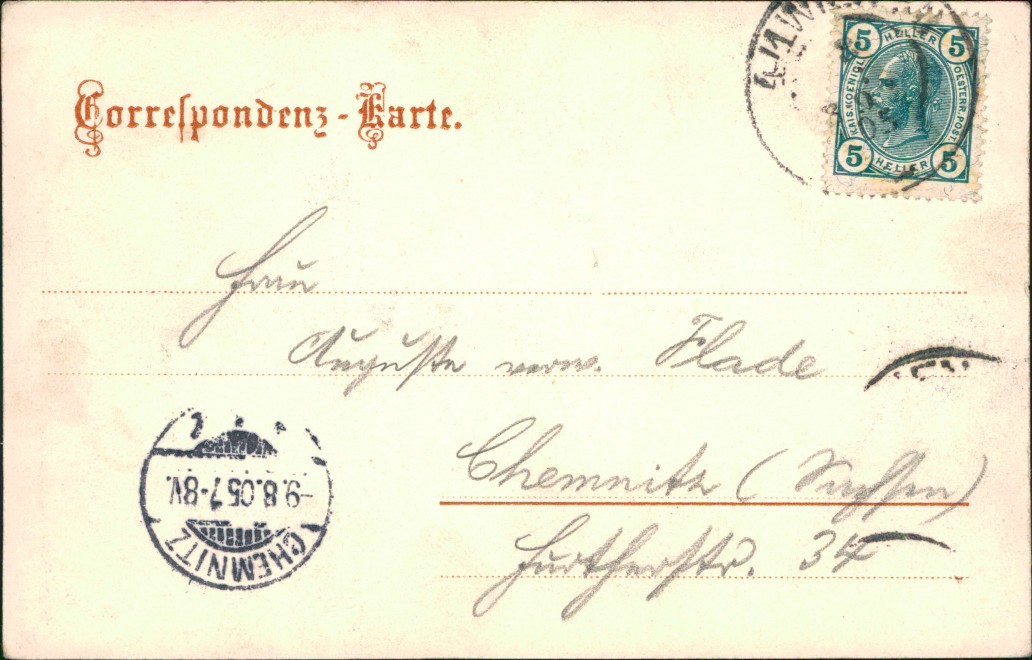 Correspondenz-Karte.
5 HELLER 5
KAIS.KOENIGL. OESTERR.POST.
5 HELLER 5
Frau
Auguste verw. Flade
Chemnitz (Sachsen)
Fürtherstr. 34
CHEMNITZ
-9.8.05.7-8V.